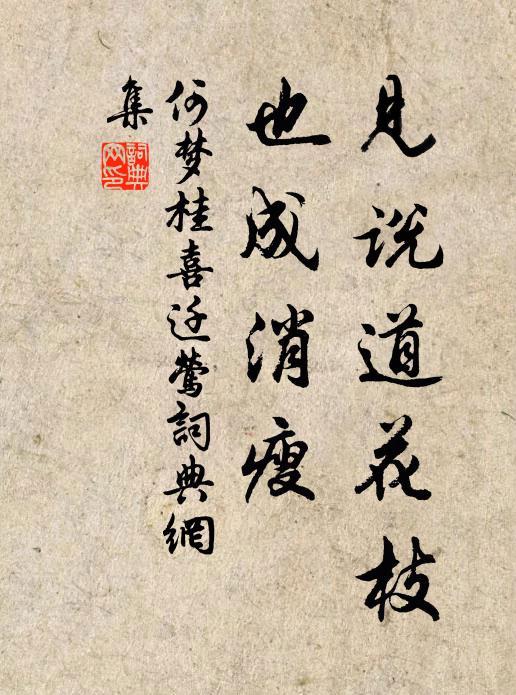 见说道花枝
也成消瘦
何梦桂喜迁莺詞典網
集
詞典网印